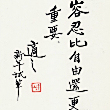 容忍比自由還更
重要
適之